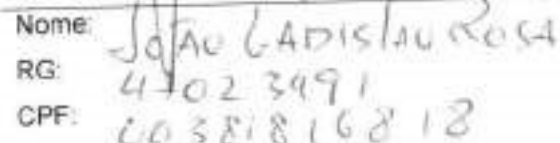 Nome: João LADISLAU ROSA
RG: 47023491
CPF: 00381816818